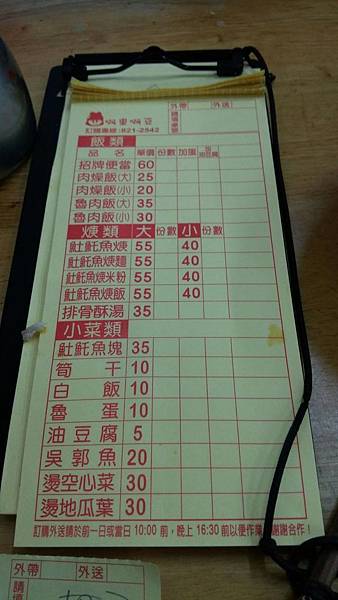 外帶 外送
請填桌號
啊里啊豆
訂購專線:821-2542
飯類
品名 單價 份數 加蛋 加油豆腐
招牌便當 60
肉燥飯(大) 25
肉燥飯(小) 20
魯肉飯(大) 35
魯肉飯(小) 30
焿類 大 份數 小 份數
𩵚魠魚焿 55 40
𩵚魠魚焿麵 55 40
𩵚魠魚焿米粉 55 40
𩵚魠魚焿飯 55 40
排骨酥湯 35
小菜類
𩵚魠魚塊 35
筍干 10
白飯 10
魯蛋 10
油豆腐 5
吳郭魚 20
燙空心菜 30
燙地瓜葉 30
訂購外送請於前一日或當日10:00前,晚上16:30前以便作業,謝謝合作!
外帶 外送